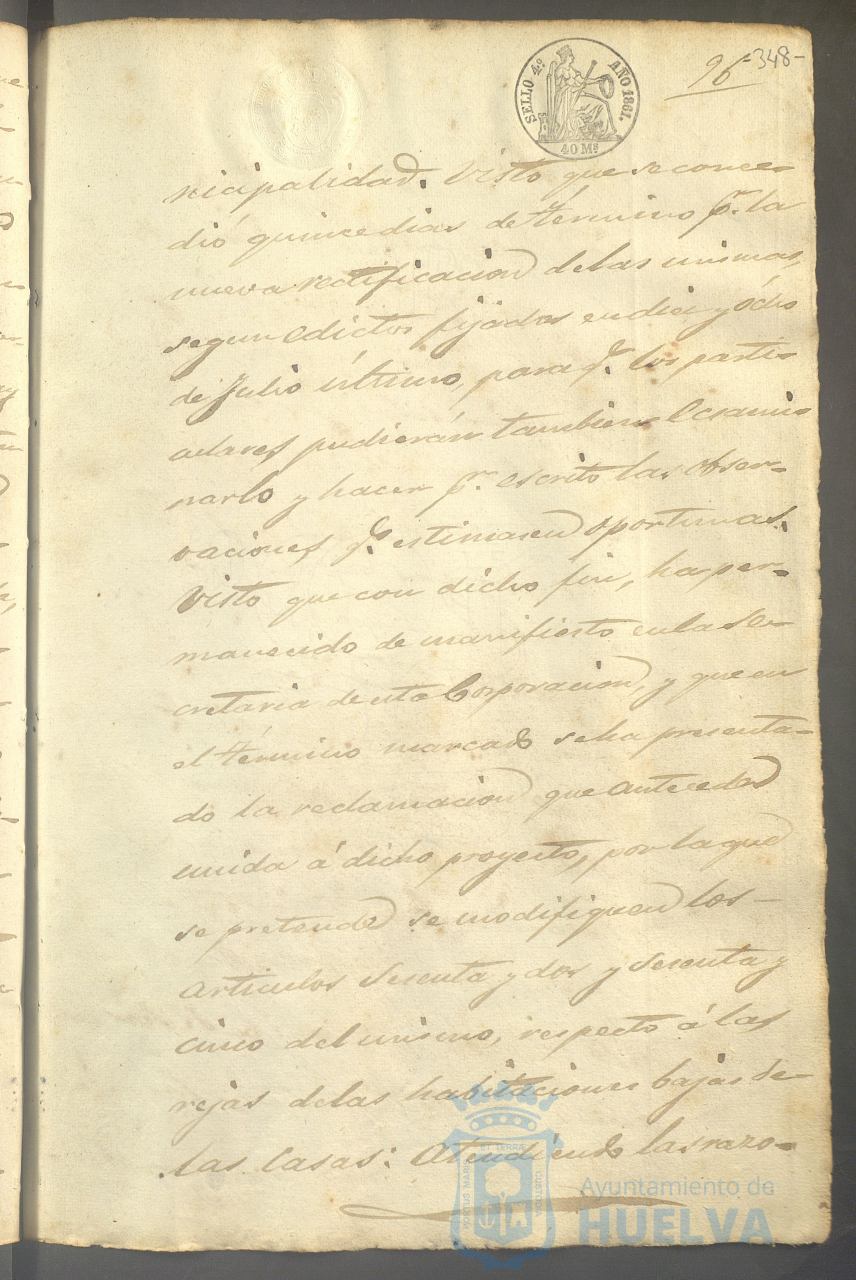 SELLO 4º AÑO 1861.
40 Mˢ
96 348-
nicipalidad. Visto que se conce-
dió quince dias de término pʳ. la
nueva rectificacion de las mismas,
segun edictos fijados en diez y ocho
de Julio último, para qᵉ. los parti-
culares pudierán tambien ecsami-
narlo y hacer pʳ. escrito las obser-
vaciones qᵉ. estimasen oportunas.
Visto que con dicho fin, ha per-
manecido de manifiesto en la Se-
cretaria de esta Corporacion, y que en
el término marcado se ha presenta-
do la reclamacion que antecede
unida á dicho proyecto, por la que
se pretende se modifiquen los-
articulos Sesenta y dos y Sesenta y
cinco del mismo, respecto á las
rejas de las habitaciones bajas de-
las Casas: Atendiendo las razo-
PORTUS MARIS ET TERRAE CUSTODIA
Ayuntamiento de
HUELVA